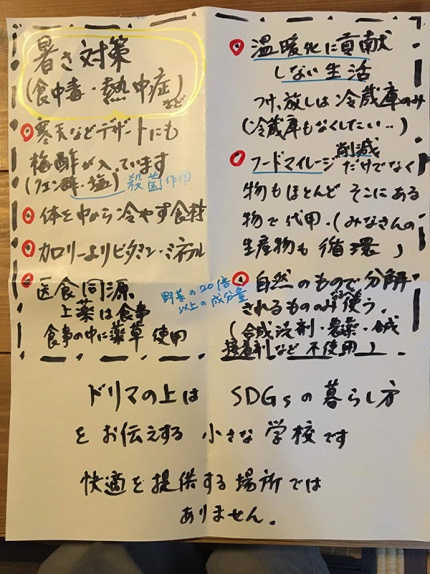 暑さ対策
(食中毒・熱中症)など
寒天などデザートにも
梅酢が入っています
(クエン酸・塩) 殺菌作用
体を中から冷やす食材
カロリーよりビタミン・ミネラル
医食同源
上薬は食事
食事の中に薬草使用
野菜の20倍
以上の成分量
温暖化に貢献
しない生活
つけ放しは冷蔵庫のみ
(冷蔵庫もなくしたい‥)
フードマイレージ削減だけでなく
物もほとんどそこにある
物で代用.(みなさんの
生産物も循環)
自然のもので分解
されるもののみ使う.
(合成洗剤・農薬・合成
接着剤など不使用)
ドリマの上は SDGsの暮らし方
をお伝えする小さな学校です
快適を提供する場所では
ありません。